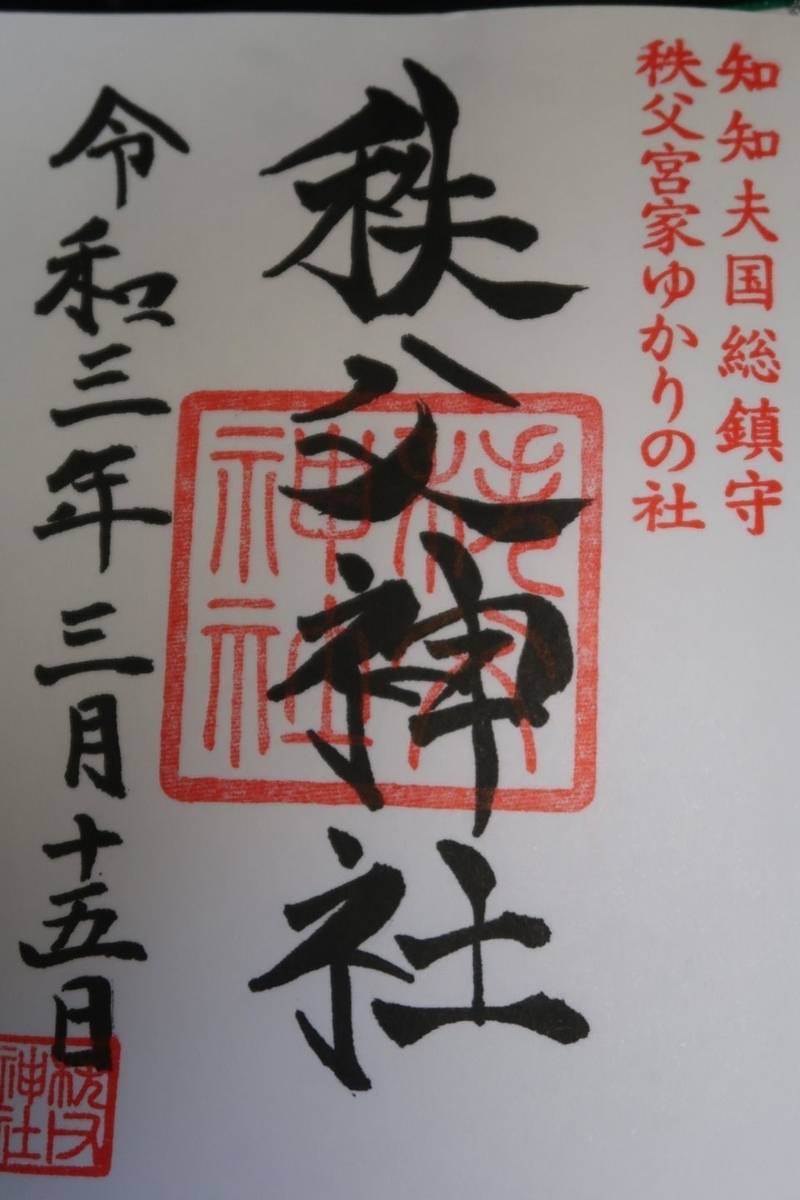 知知夫国総鎮守
秩父宮家ゆかりの社
秩父神社
秩父神社
令和三年三月十五日
秩父神社